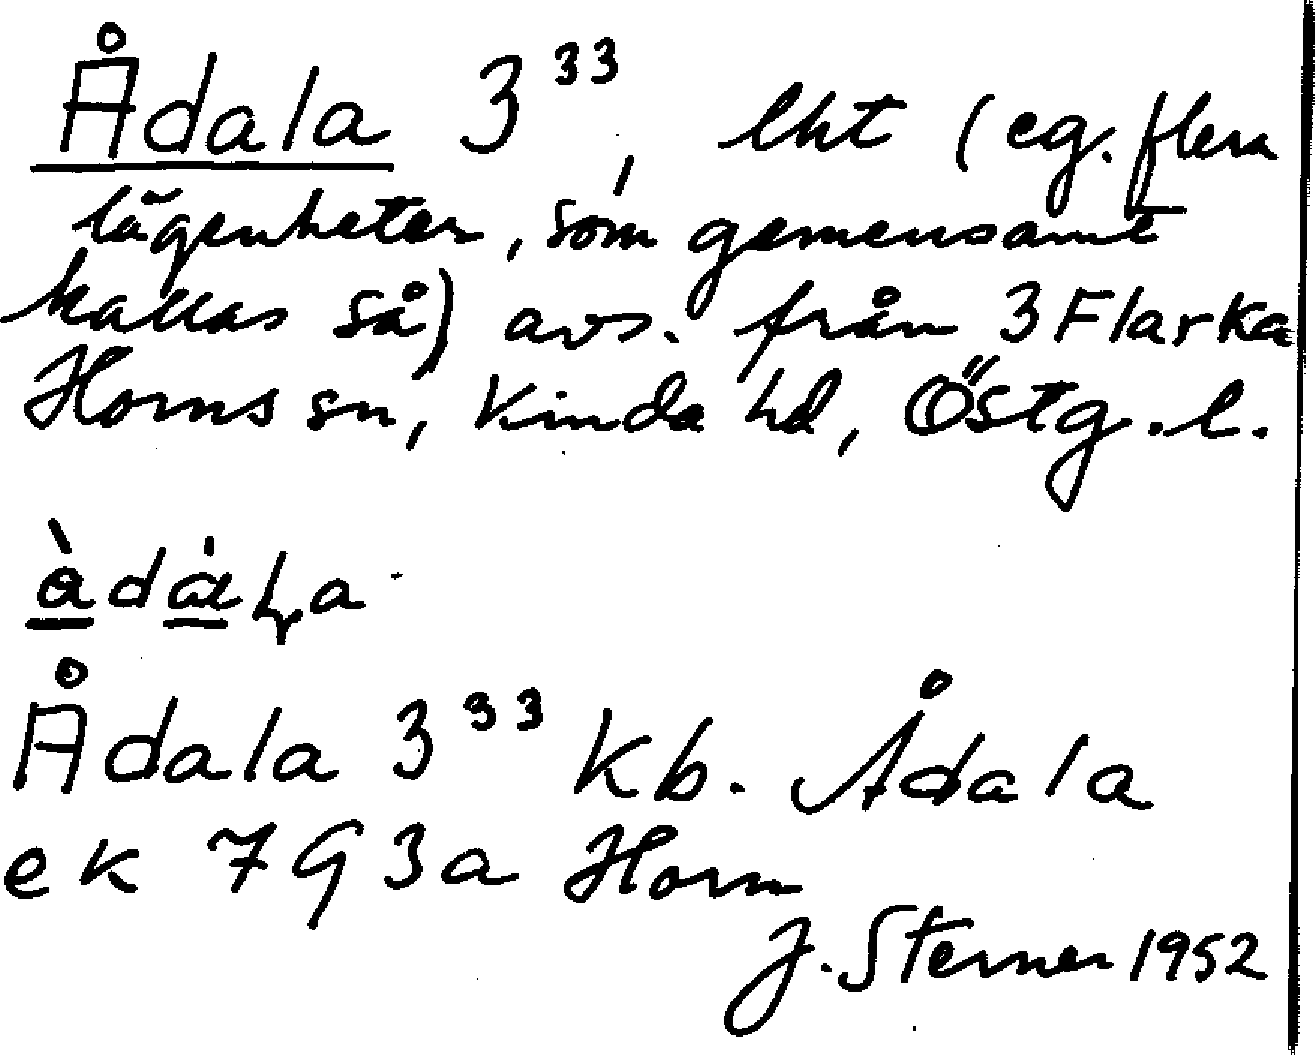 Ådala 3³³, lht (eg. flera
lägenheter, som gemensamt
kallas så) avs. från 3 Flarka
Horns sn, Kinda hd, Östg. l.
Ådala 3³³ kb. Ådala
ek 7 G 3a Horn
J. Sterner 1952